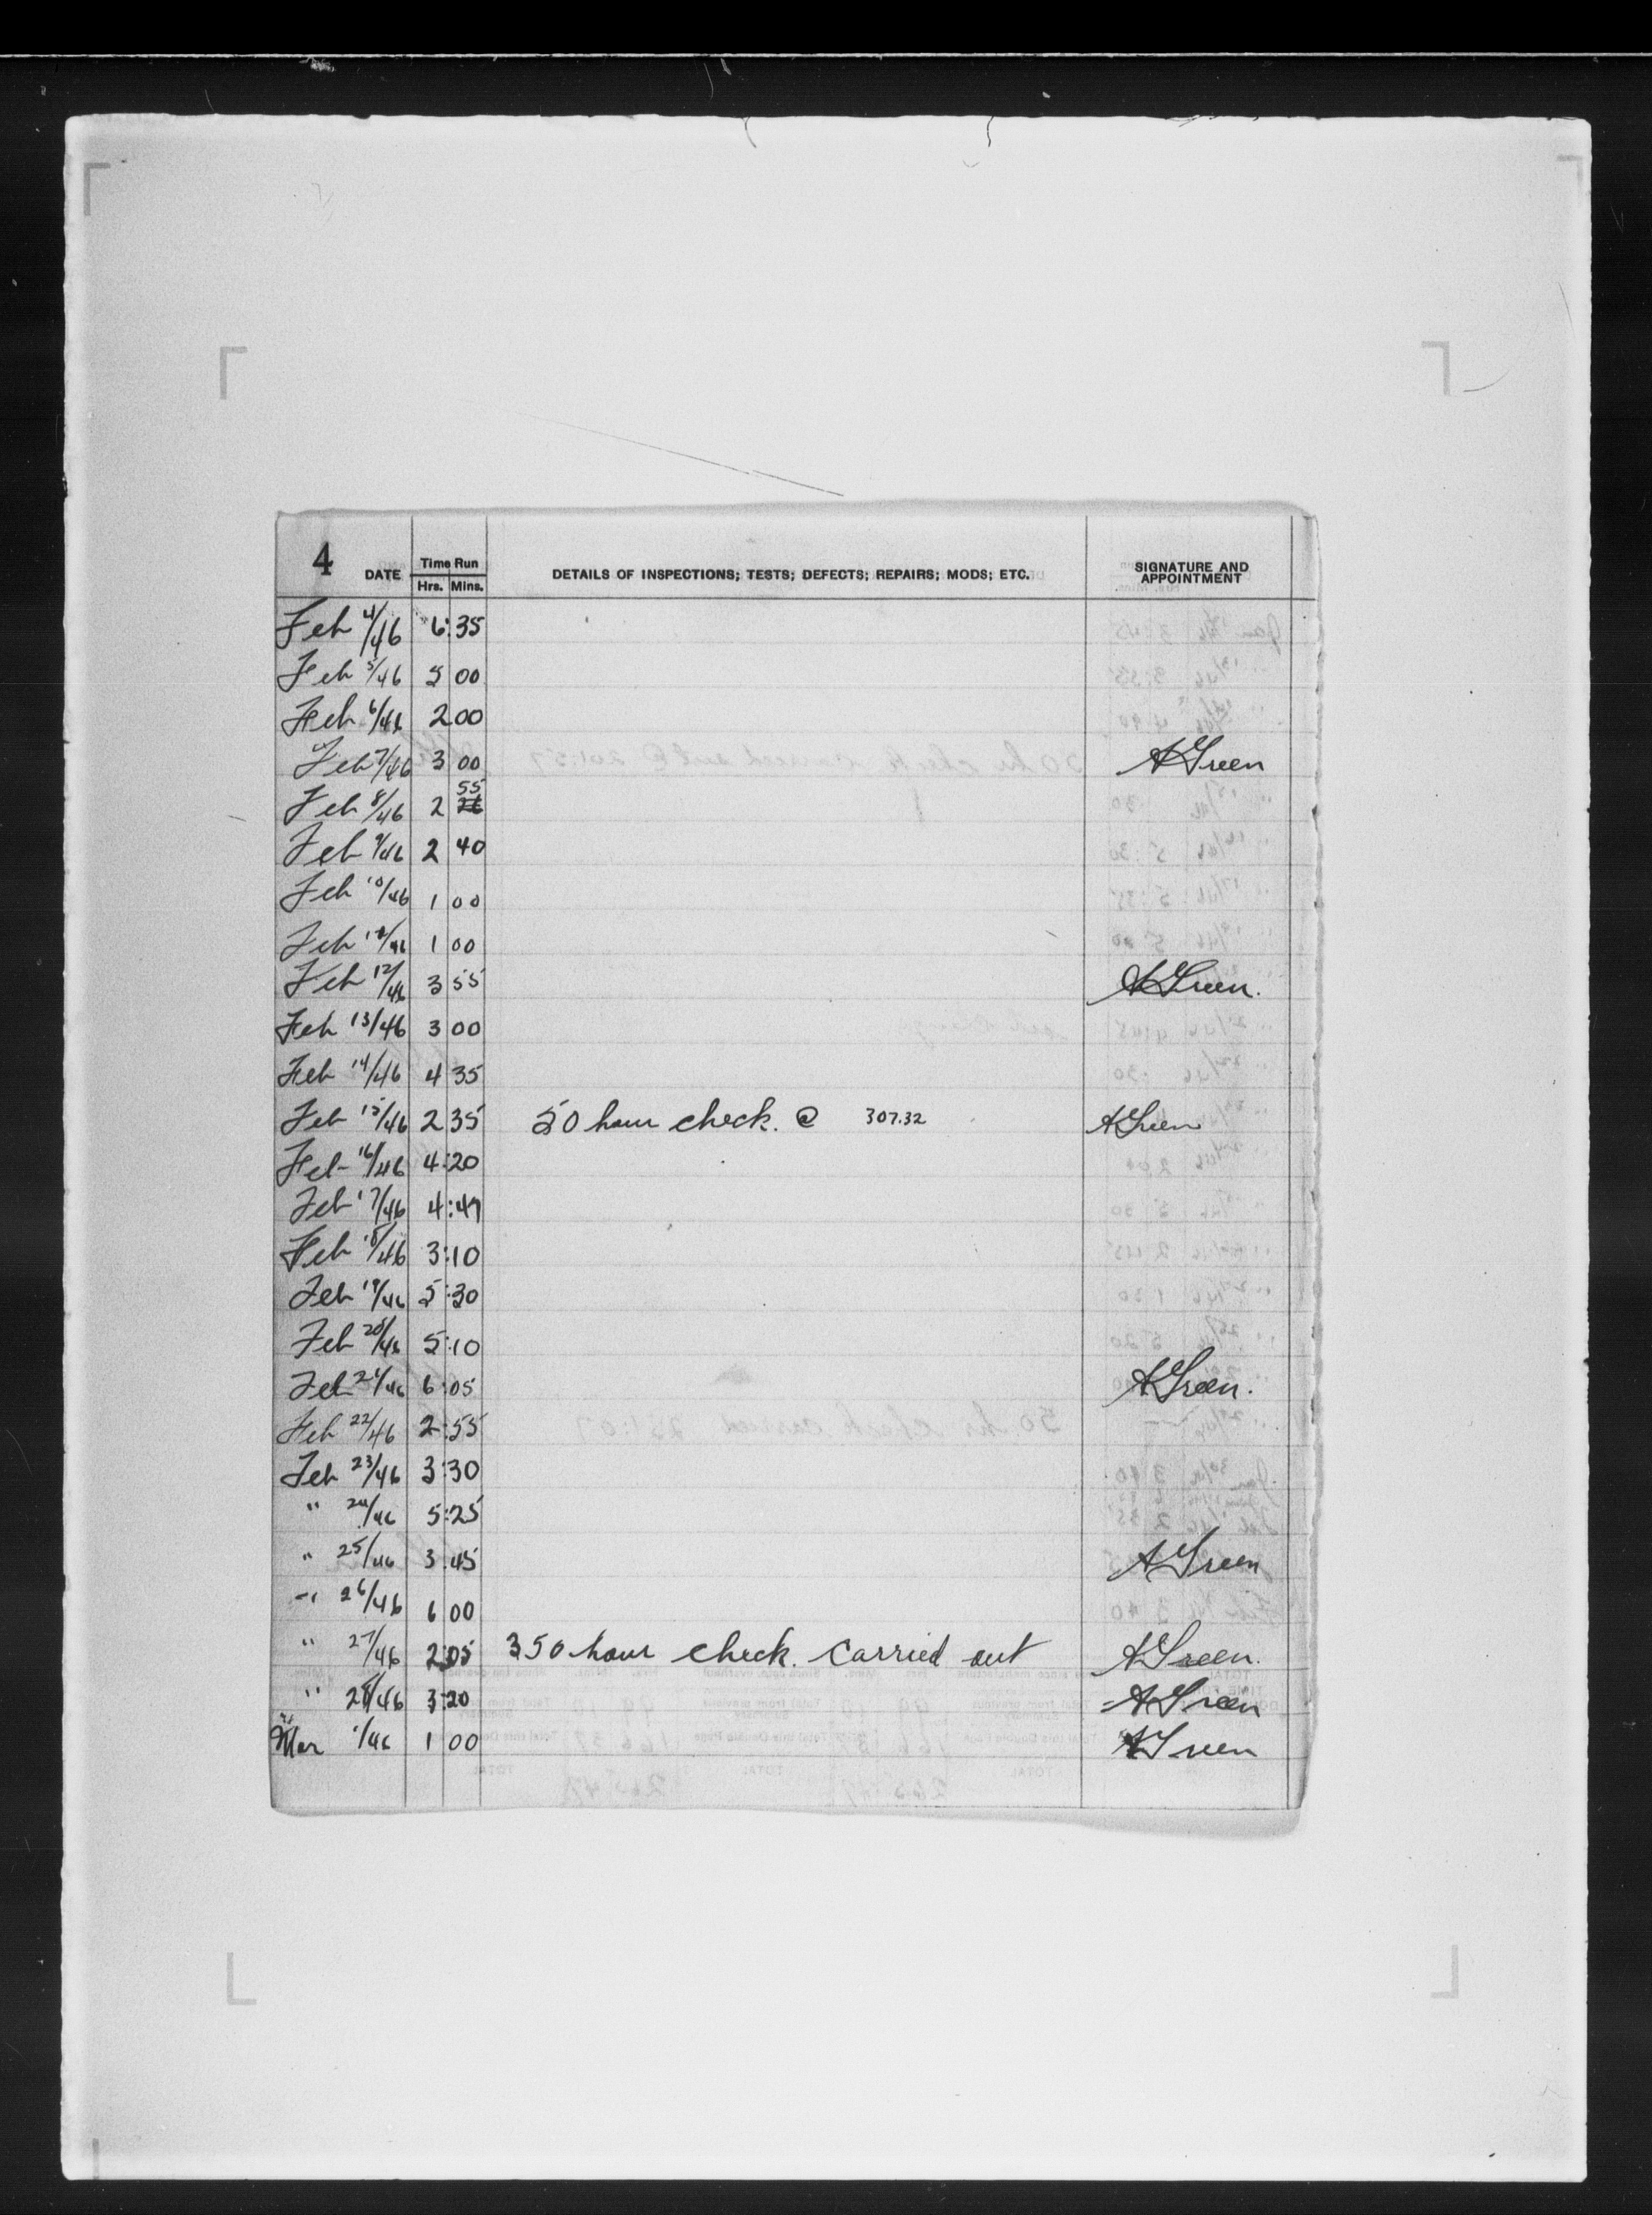 4 DATE Time Run Hrs. Mins. DETAILS OF INSPECTIONS; TESTS; DEFECTS; REPAIRS; MODS; ETC. SIGNATURE AND APPOINTMENT
Feb 4/46 6:35
Feb 5/46 5 00
Feb 6/46 2 00
Feb 7/46 3 00 A Green
Feb 8/46 2 55
Feb 9/46 2 40
Feb 10/46 1 00
Feb /46 1 00
Feb 12/46 3 55 A Green.
Feb 13/46 3 00
Feb 14/46 4 35
Feb 15/46 2 35 50 hour check. @ 307.32 A Green
Feb 16/46 4:20
Feb 17/46 4:47
Feb 18/46 3:10
Feb 19/46 5:30
Feb 20/46 5:10
Feb 21/46 6:05 A Green.
Feb 22/46 2:55
Feb 23/46 3:30
" 24/46 5:25
" 25/46 3.45 A Green
" 26/46 6 00
" 27/46 2:05 350 hour check. Carried out A Green.
" 28/46 3:20 A Green
Mar 1/46 1 00 A Green